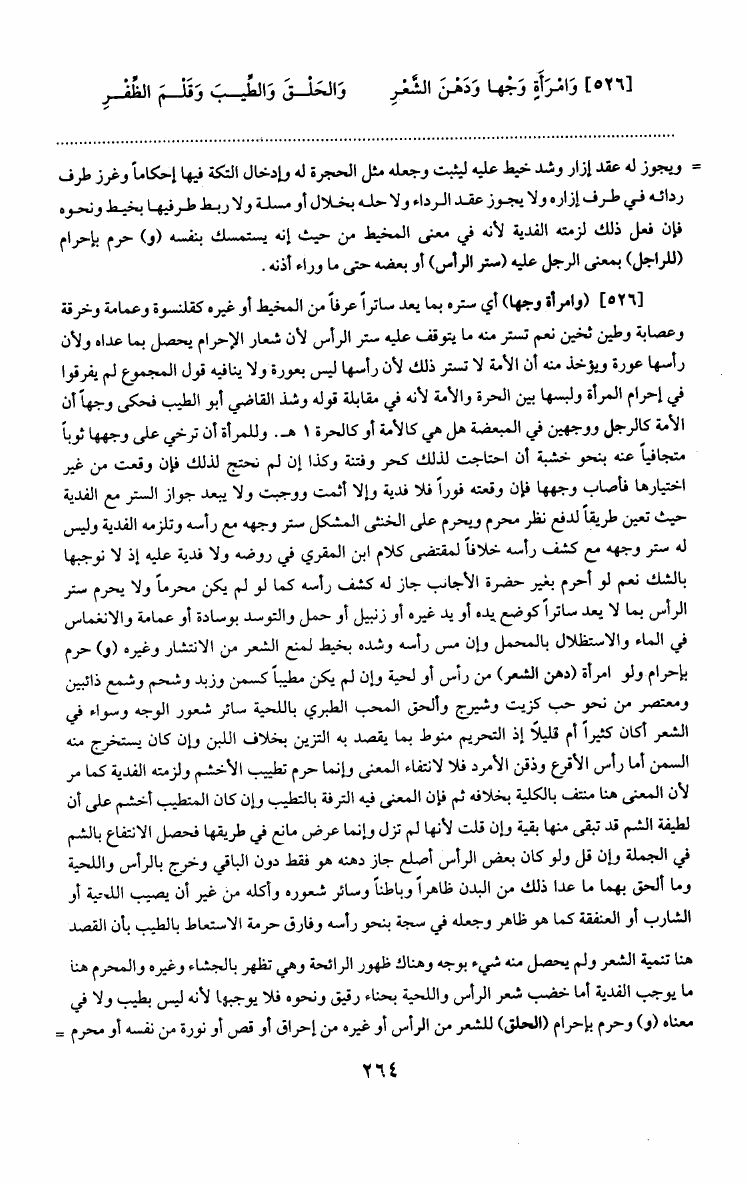 [٥٢٦] وَامْرَأَةٍ وَجْهَا وَدَهْنَ الشَّعْرِ وَالحَلْـقَ وَالطِّيـبَ وَقَلْـمَ الظِّفْـرِ
= ويجوز له عقد إزار وشد خيط عليه ليثبت وجعله مثل الحجرة له وإدخال التكة فيها إحكاماً وغرز طرف
ردائه في طرف إزاره ولا يجوز عقد الرداء ولا حله بخلال أو مسلة ولا ربط طرفيها بخيط ونحوه
فإن فعل ذلك لزمته الفدية لأنه في معنى المخيط من حيث إنه يستمسك بنفسه (و) حرم بإحرام
(للراجل) بمعنى الرجل عليه (ستر الرأس) أو بعضه حتى ما وراء أذنه .
[٥٢٦] (وامرأة وجها) أي ستره بما يعد ساتراً عرفاً من المخيط أو غيره كقلنسوة وعمامة وخرقة
وعصابة وطين ثخين نعم تستر منه ما يتوقف عليه ستر الرأس لأن شعار الإحرام يحصل بما عداه ولأن
رأسها عورة ويؤخذ منه أن الأمة لا تستر ذلك لأن رأسها ليس بعورة ولا ينافيه قول المجموع لم يفرقوا
في إحرام المرأة ولبسها بين الحرة والأمة لأنه في مقابلة قوله وشذ القاضي أبو الطيب فحكى وجهاً أن
الأمة كالرجل ووجهين في المبعضة هل هي كالأمة أو كالحرة ١ هـ. وللمرأة أن ترخي على وجهها ثوباً
متجافياً عنه بنحو خشبة أن احتاجت لذلك كحر وفتنة وكذا إن لم تحتج لذلك فإن وقعت من غير
اختيارها فأصاب وجهها فإن وقعته فوراً فلا فدية وإلا أثمت ووجبت ولا يبعد جواز الستر مع الفدية
حيث تعين طريقاً لدفع نظر محرم ويحرم على الخنثى المشكل ستر وجهه مع رأسه وتلزمه الفدية وليس
له ستر وجهه مع كشف رأسه خلافاً لمقتضى كلام ابن المقري في روضه ولا فدية عليه إذ لا نوجبها
بالشك نعم لو أحرم بغير حضرة الأجانب جاز له كشف رأسه كما لو لم يكن محرماً ولا يحرم ستر
الرأس بما لا يعد ساتراً كوضع يده أو يد غيره أو زنبيل أو حمل والتوسد بوسادة أو عمامة والانغماس
في الماء والاستظلال بالمحمل وإن مس رأسه وشده بخيط لمنع الشعر من الانتشار وغيره (و) حرم
بإحرام ولو امرأة (دهن الشعر) من رأس أو لحية وإن لم يكن مطيباً كسمن وزبد وشحم وشمع ذائبين
ومعتصر من نحو حب كزيت وشيرج وألحق المحب الطبري باللحية سائر شعور الوجه وسواء في
الشعر أكان كثيراً أم قليلاً إذ التحريم منوط بما يقصد به التزين بخلاف اللبن وإن كان يستخرج منه
السمن أما رأس الأقرع وذقن الأمرد فلا لانتفاء المعنى وإنما حرم تطييب الأخشم ولزمته الفدية كما مر
لأن المعنى هنا منتف بالكلية بخلافه ثم فإن المعنى فيه الترفة بالتطيب وإن كان المتطيب أخشم على أن
لطيفة الشم قد تبقى منها بقية وإن قلت لأنها لم تزل وإنما عرض مانع في طريقها فحصل الانتفاع بالشم
في الجملة وإن قل ولو كان بعض الرأس أصلع جاز دهنه هو فقط دون الباقي وخرج بالرأس واللحية
وما ألحق بهما ما عدا ذلك من البدن ظاهراً وباطناً وسائر شعوره وأكله من غير أن يصيب اللحية أو
الشارب أو العنفقة كما هو ظاهر وجعله في سجة بنحو رأسه وفارق حرمة الاستعاط بالطيب بأن القصد
هنا تنمية الشعر ولم يحصل منه شيء بوجه وهناك ظهور الرائحة وهي تظهر بالجشاء وغيره والمحرم هنا
ما يوجب الفدية أما خضب شعر الرأس واللحية بحناء رقيق ونحوه فلا يوجبها لأنه ليس بطيب ولا في
معناه (و) وحرم بإحرام (الحلق) للشعر من الرأس أو غيره من إحراق أو قص أو نورة من نفسه أو محرم =
٢٦٤